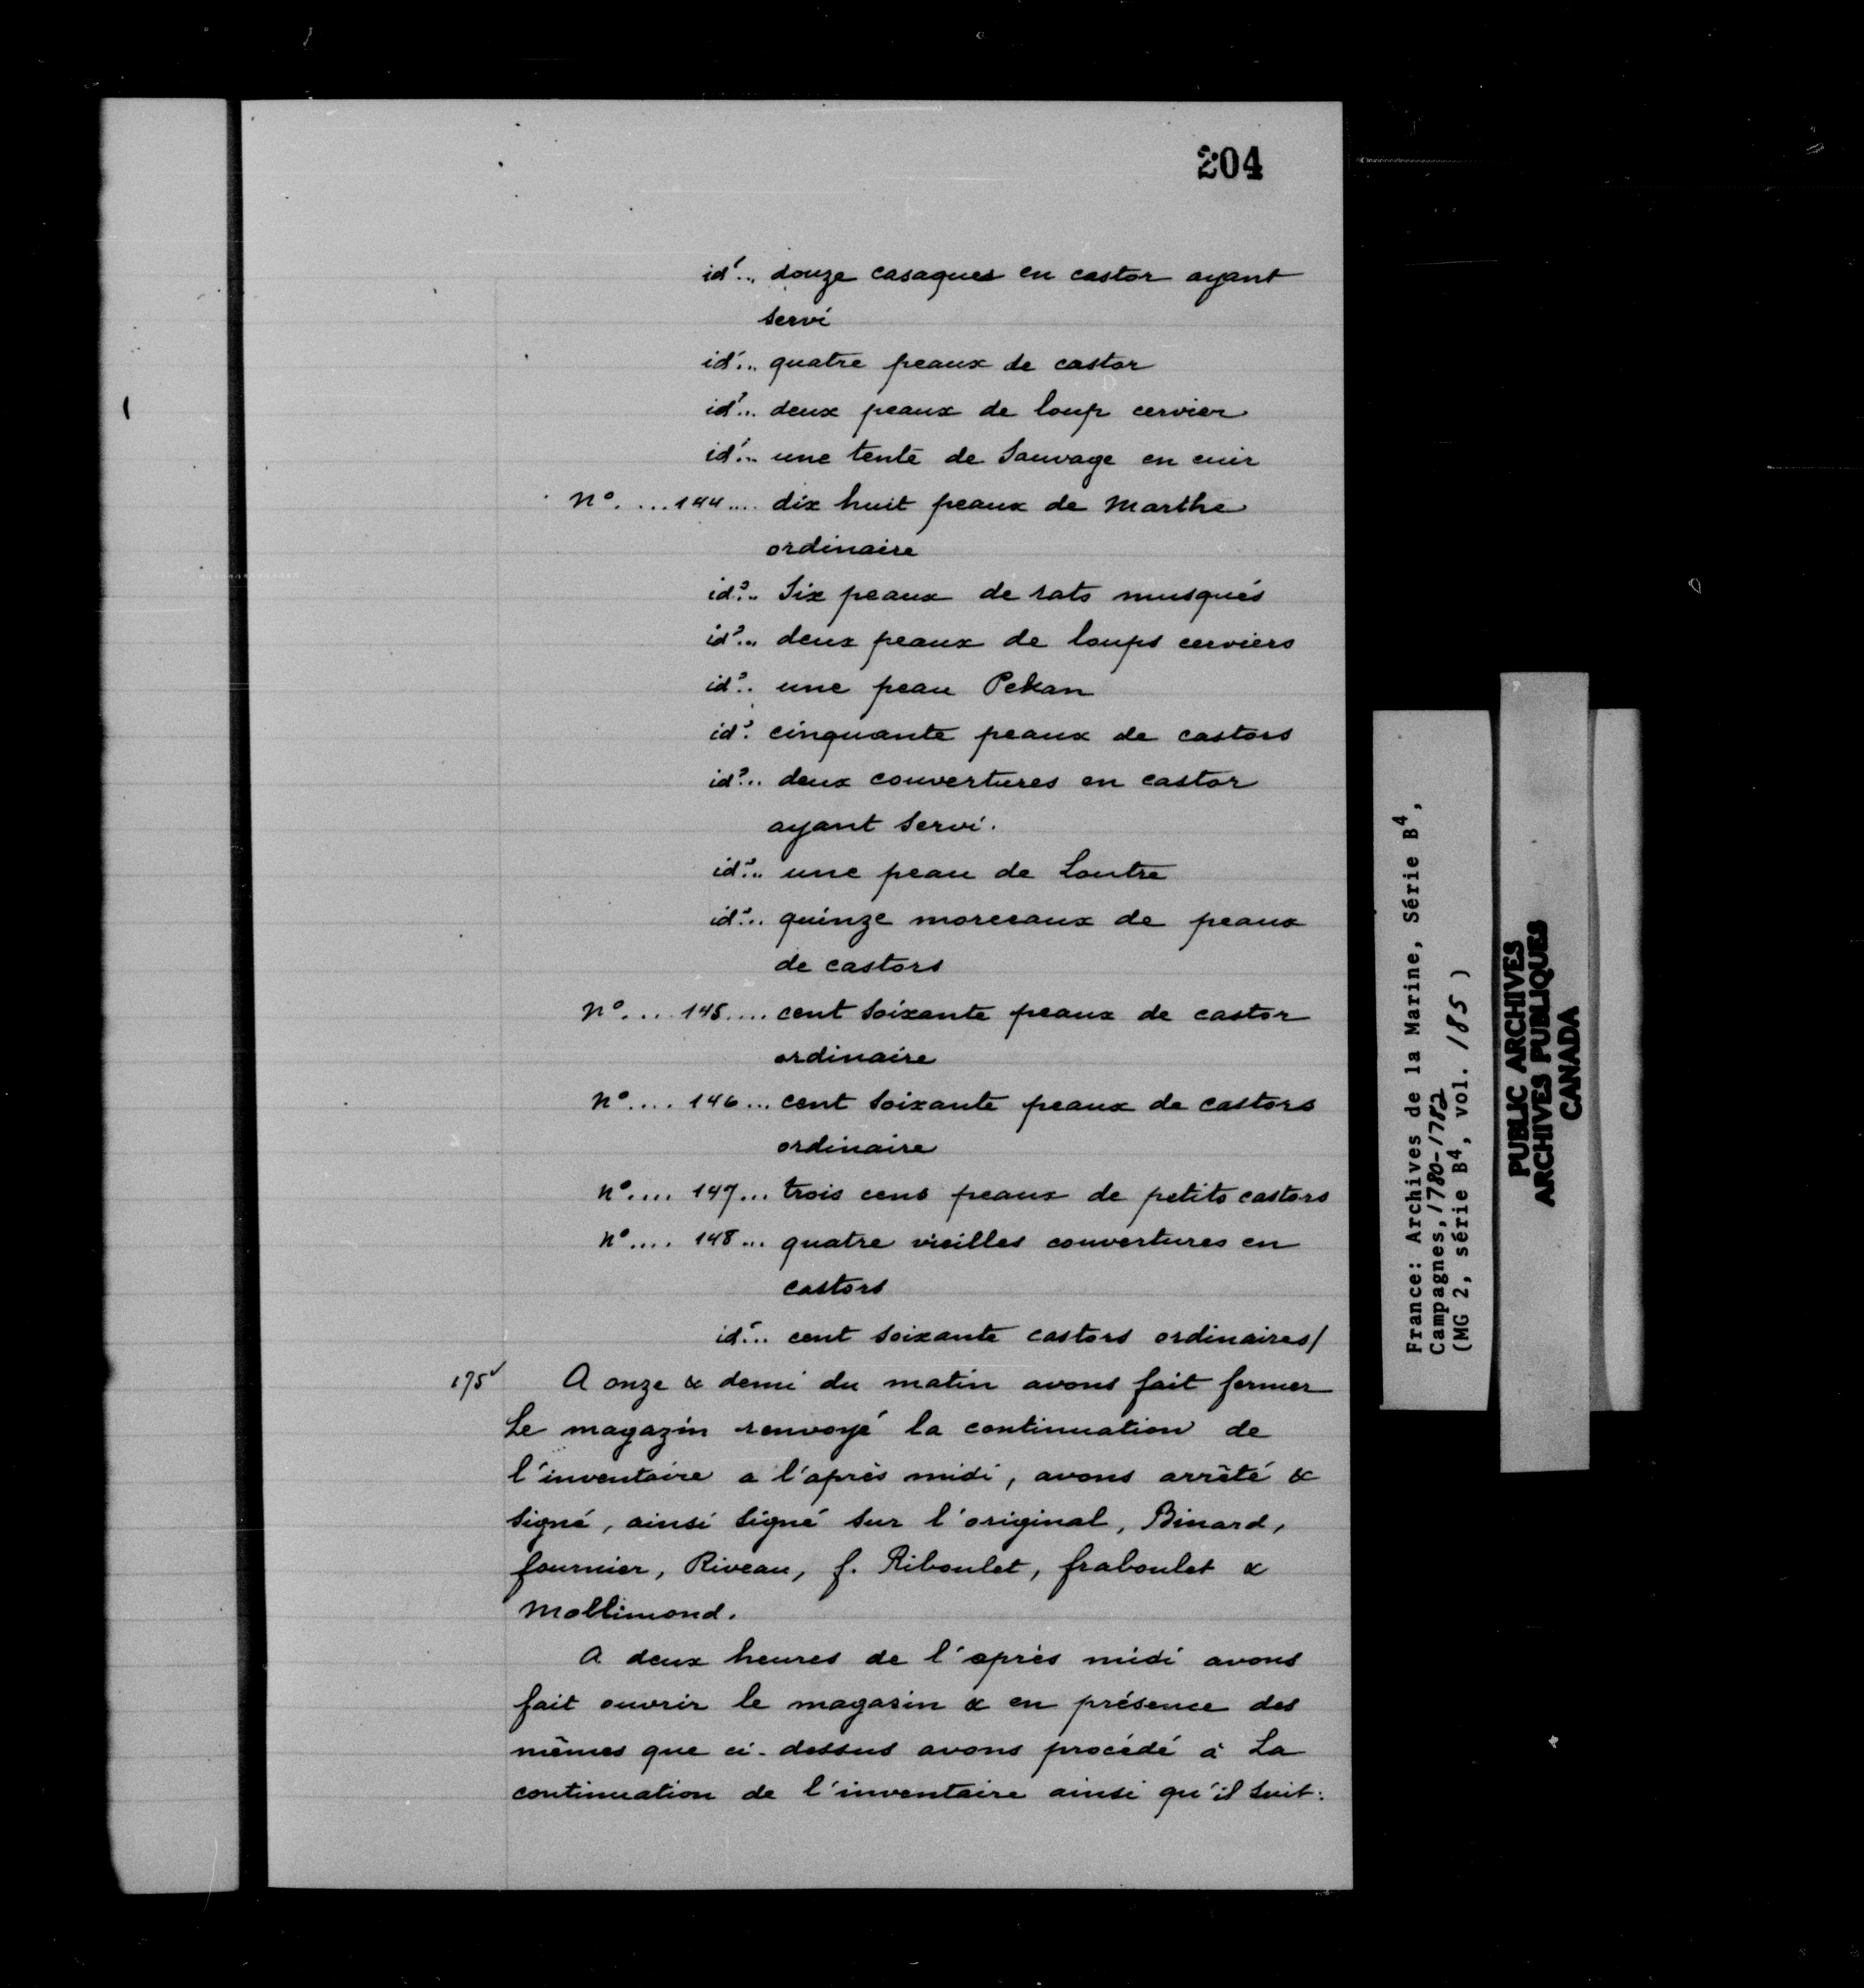 204
id°... douze casaques en castor ayant
servi
id°... quatre peaux de castor
id°... deux peaux de loup cervier
id°... une tente de Sauvage en cuir
N°. ...144.... dix huit peaux de Marthe
ordinaire
id°.. Six peaux de rats musqués
id°... deux peaux de loups cerviers
id°.. une peau Pekan
id°. cinquante peaux de castors
id°... deux couvertures en castor
ayant servi.
id°... une peau de Loutre
id°... quinze morceaux de peaux
de castors
N°.... 145.... cent soixante peaux de castor
ordinaire
N°.... 146... cent soixante peaux de castors
ordinaire
N°.... 147... trois cens peaux de petits castors
N°.... 148... quatre vieilles couvertures en
castors
id°... cent soixante castors ordinaires/
175v A onze & demi du matin avons fait fermer
Le magazin renvoyé la continuation de
l'inventaire a l'après midi, avons arrêté &
signé, ainsi signé sur l'original, Binard,
fournier, Riveau, f. Riboulet, fraboulet &
Mollimond.
A deux heures de l'après midi avons
fait ouvrir le magasin & en présence des
mêmes que ci-dessus avons procédé à La
continuation de l'inventaire ainsi qu'il suit:
France: Archives de la Marine, Série B4,
Campagnes, 1780-1782
(MG 2, série B4, vol. 185)
PUBLIC ARCHIVES
ARCHIVES PUBLIQUES
CANADA